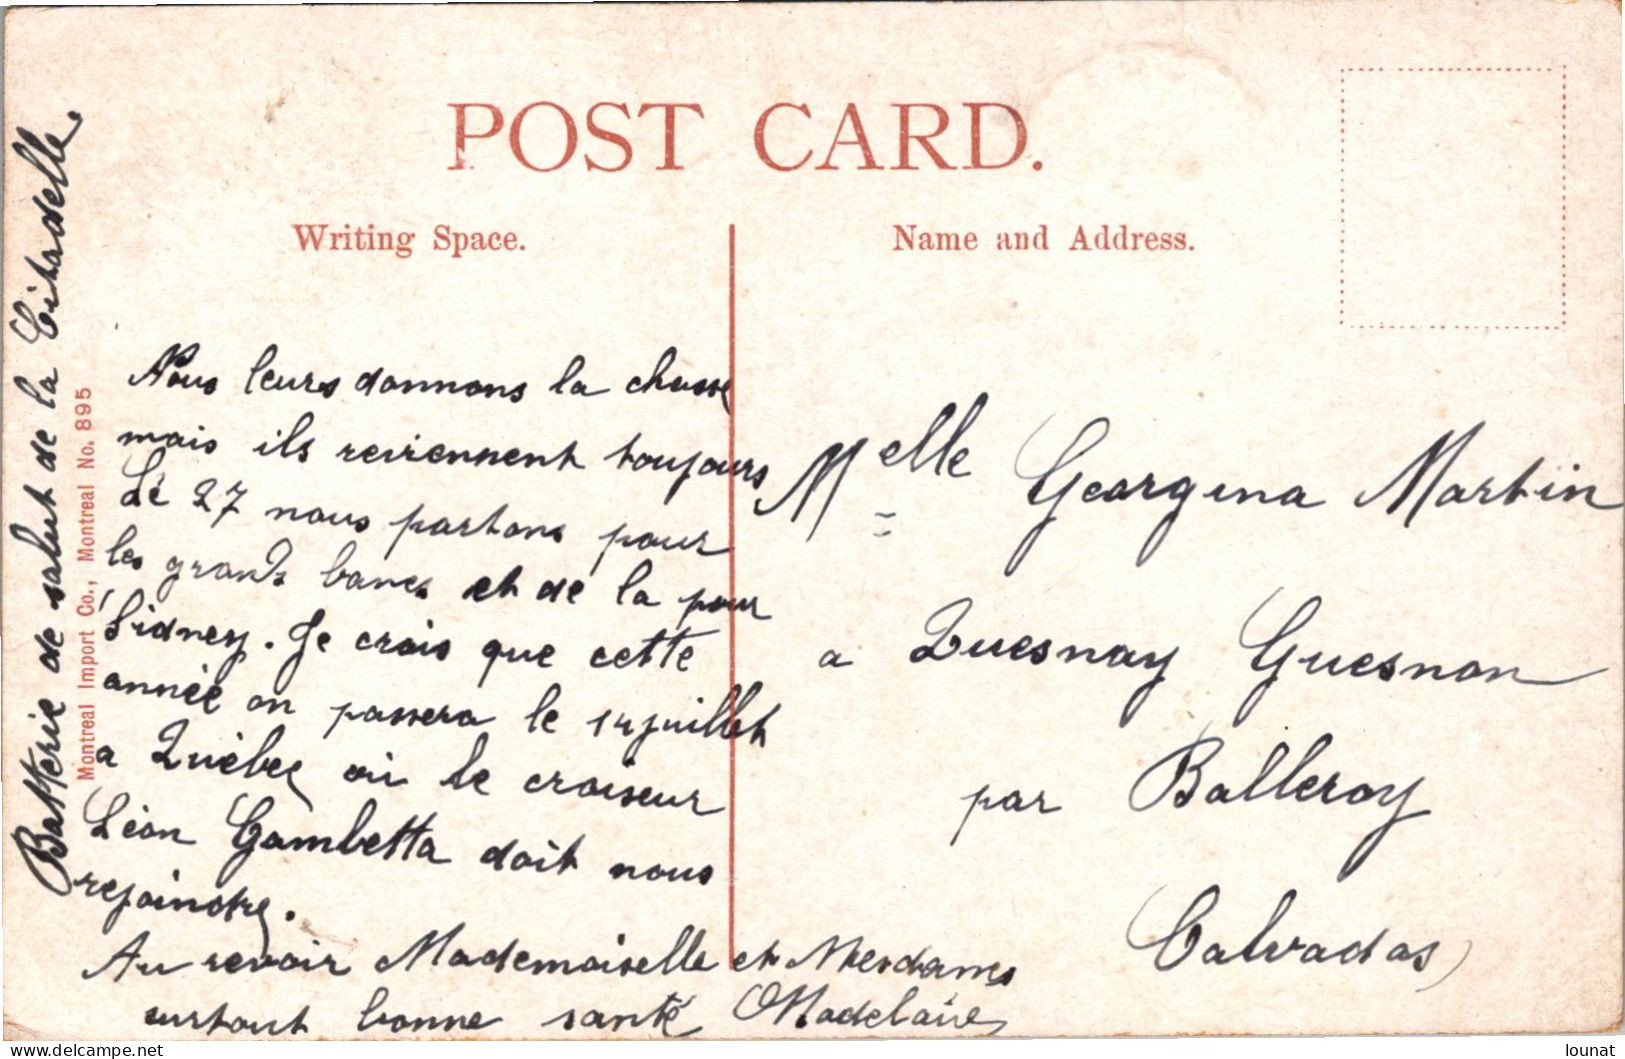 POST CARD.
Writing Space.
Name and Address.
Batterie de salut de la Citadelle.
Montreal Import Co., Montreal No. 895
Nous leurs donnons la chasse
mais ils reviennent toujours
Le 27 nous partons pour
les grands bancs et de la pour
Sidney. Je crois que cette
année on passera le 14 juillet
a Québec où le croiseur
Léon Gambetta doit nous
rejoindre.
Au revoir Mademoiselle et Mesdames
surtout bonne santé Madelaine
Melle Georgina Martin
a Quesnay Guesnon
par Balleroy
Calvados
lounat
delcampe.net